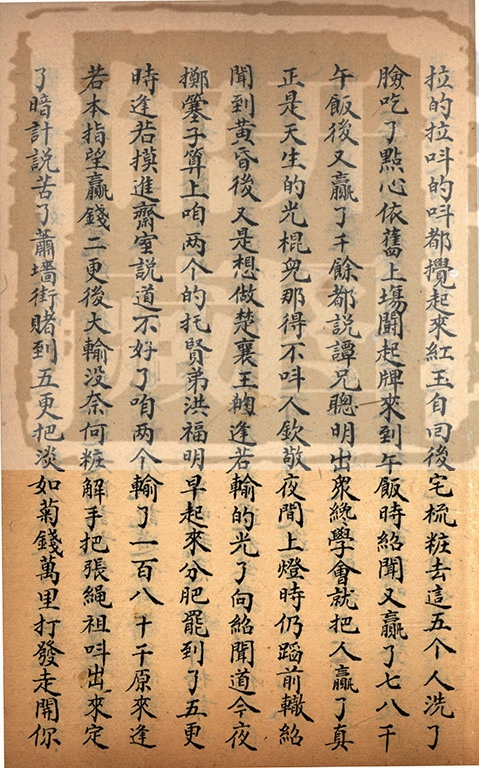 拉的拉呌的呌都攪起來紅玉自回後宅梳粧去這五个人洗了
臉吃了點心依舊上塲鬭起牌來到午飯時紹聞又贏了七八千
午飯後又贏了千餘都說譚兄聰明出衆纔學會就把人贏了真
正是天生的光棍皃那得不呌人欽敬夜間上燈時仍蹈前轍紹
聞到黃昏後又是想做楚襄王的逢若輸的光了向紹聞道今夜
擲簺子算上咱两个的托賢弟洪福明早起來分肥罷到了五更
時逢若摸進齋室說道不好了咱两个輸了一百八十千原來逢
若本指望贏錢二更後大輸没奈何粧解手把張繩祖呌出來定
了暗計說苦了蕭墻街賭到五更把淡如菊錢萬里打發走開你